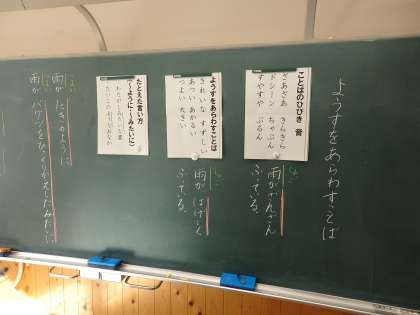 ようすをあらわすことば
ことばのひびき 音
ざあざあ きらきら
ドシーン ちゃぷん
すやすや ぶるん
雨がざんざん
ふっている。
ようすをあらわすことば
きれいな すずしい
あつい あかるい
つよい 大きい
雨が はげしく
ふっている。
たとえた言い方
(~ように~みたいに)
わたがしみたいな雲
たいこのようなおなか
雨が たきのように
雨が バケツをひっくりかえしたみたいに